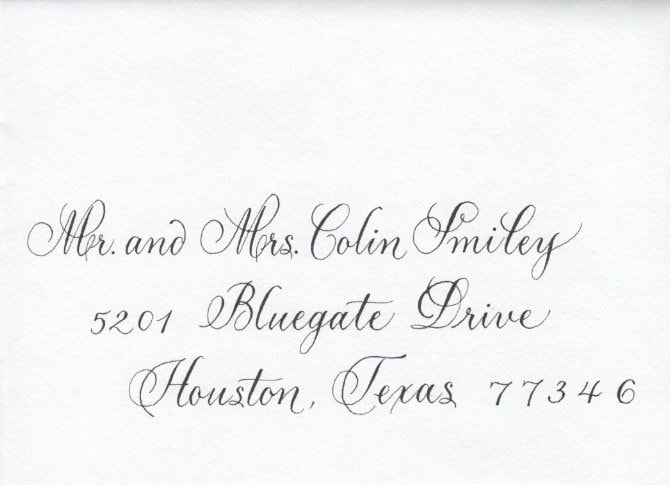 Mr. and Mrs. Colin Smiley
5201 Bluegate Drive
Houston, Texas 77346